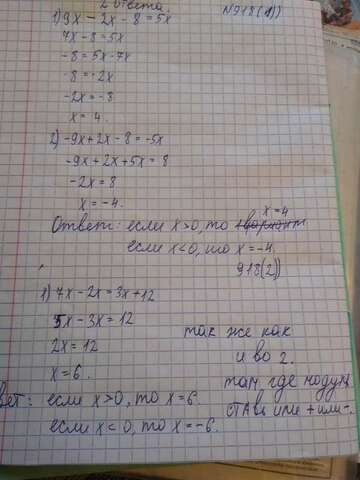 2 ответа.
№918(1))
1) 9x - 2x - 8 = 5x
7x - 8 = 5x
-8 = 5x - 7x
-8 = -2x
-2x = -8
x = 4.
2) -9x + 2x - 8 = -5x
-9x + 2x + 5x = 8
-2x = 8
x = -4.
x = 4
Ответ: если x > 0, то
если x < 0, то x = -4.
918(2))
1) 7x - 2x = 3x + 12
5x - 3x = 12
2x = 12
x = 6.
вет: если x > 0, то x = 6.
если x < 0, то x = -6.
так же как
и во 2.
там где модул
ставь или + или -.